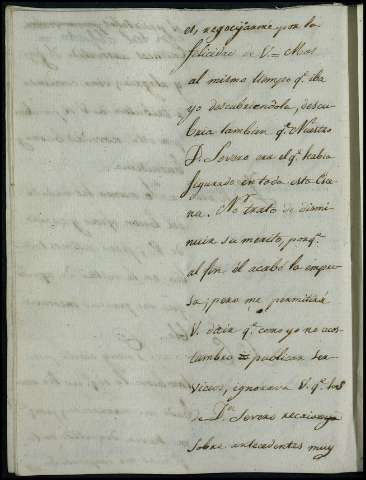 es, regocijarme por la
felicidad de V= Mas
al mismo tiempo q.e iba
yo descubriendola, descu
bria tambien q.e Nuestro
D. Severo era el q.e habia
figurado en toda esta
No trato de dismi
nuir su merito, porq.e
al fin él acabó la empre
sa; pero me permitirá
V. decir q.e como yo no acos
tumbro = publicar ser
vicios, ignorava V. q.e los
de D.n Severo recaivan
sobre antecedentes muy